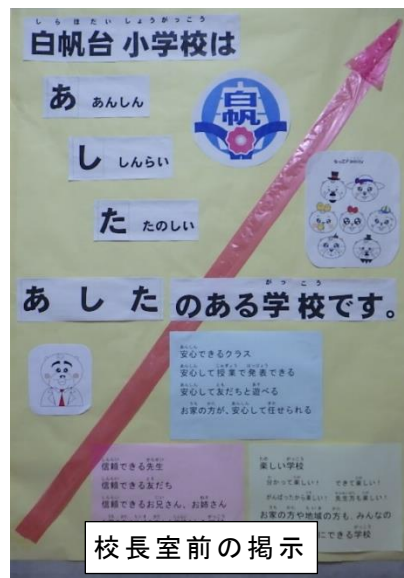 しらほだい しょうがっこう
白帆台 小学校は
白帆
あ あんしん
し しんらい
た たのしい
あした のある学校です。
がっこう
安心できるクラス
安心して授業で発表できる
安心して友だちと遊べる
お家の方が、安心して任せられる
信頼できる先生
信頼できる友だち
信頼できるお兄さん、お姉さん
楽しい学校
分かって楽しい! できて楽しい!
がんばったから楽しい! 先生方も楽しい!
お家の方や地域の方も、みんなの
にできる学校
校長室前の掲示